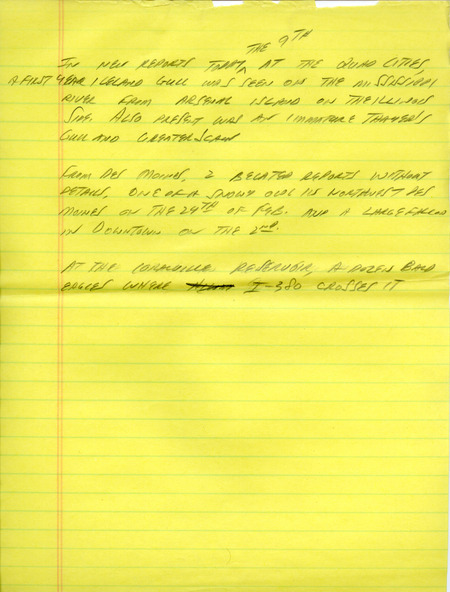 THE 9TH
IN NEW REPORTS TODAY ^ AT THE QUAD CITIES,
A FIRST YEAR ICELAND GULL WAS SEEN ON THE MISSISSIPPI
RIVER FROM ARSENAL ISLAND ON THE ILLINOIS
SIDE. ALSO PRESENT WAS AN IMMATURE THAYER'S
GULL AND GREATER SCAUP
FROM DES MOINES, 2 BELATED REPORTS WITHOUT
DETAILS, ONE OF A SNOWY OWL IN NORTHWEST DES
MOINES ON THE 24TH OF FEB. AND A LARGE FALCON
IN DOWNTOWN ON THE 2ND.
AT THE CORALVILLE RESERVOIR, A DOZEN BALD
EAGLES WHERE I-380 CROSSES IT